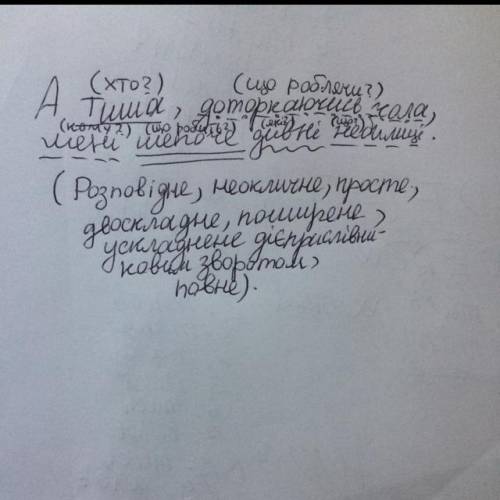 (хто?) (що роблячи?)
А тиша, доторкаючись чола,
(кому?) (що робить?) (які?) (що?)
мені шепоче дивні небилиці.
(Розповідне, неокличне, просте,
двоскладне, поширене,
ускладнене дієприслівни-
ковим зворотом,
повне).